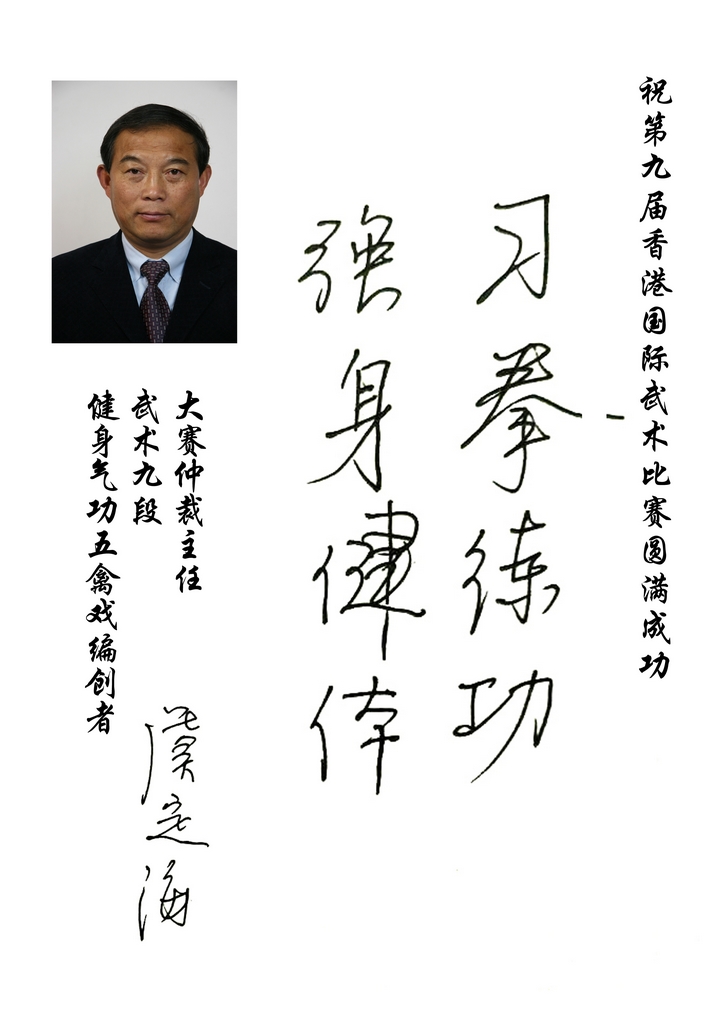 祝第九届香港国际武术比赛圆满成功
习拳练功
强身健体
大赛仲裁主任
武术九段
健身气功五禽戏编创者
虞定海